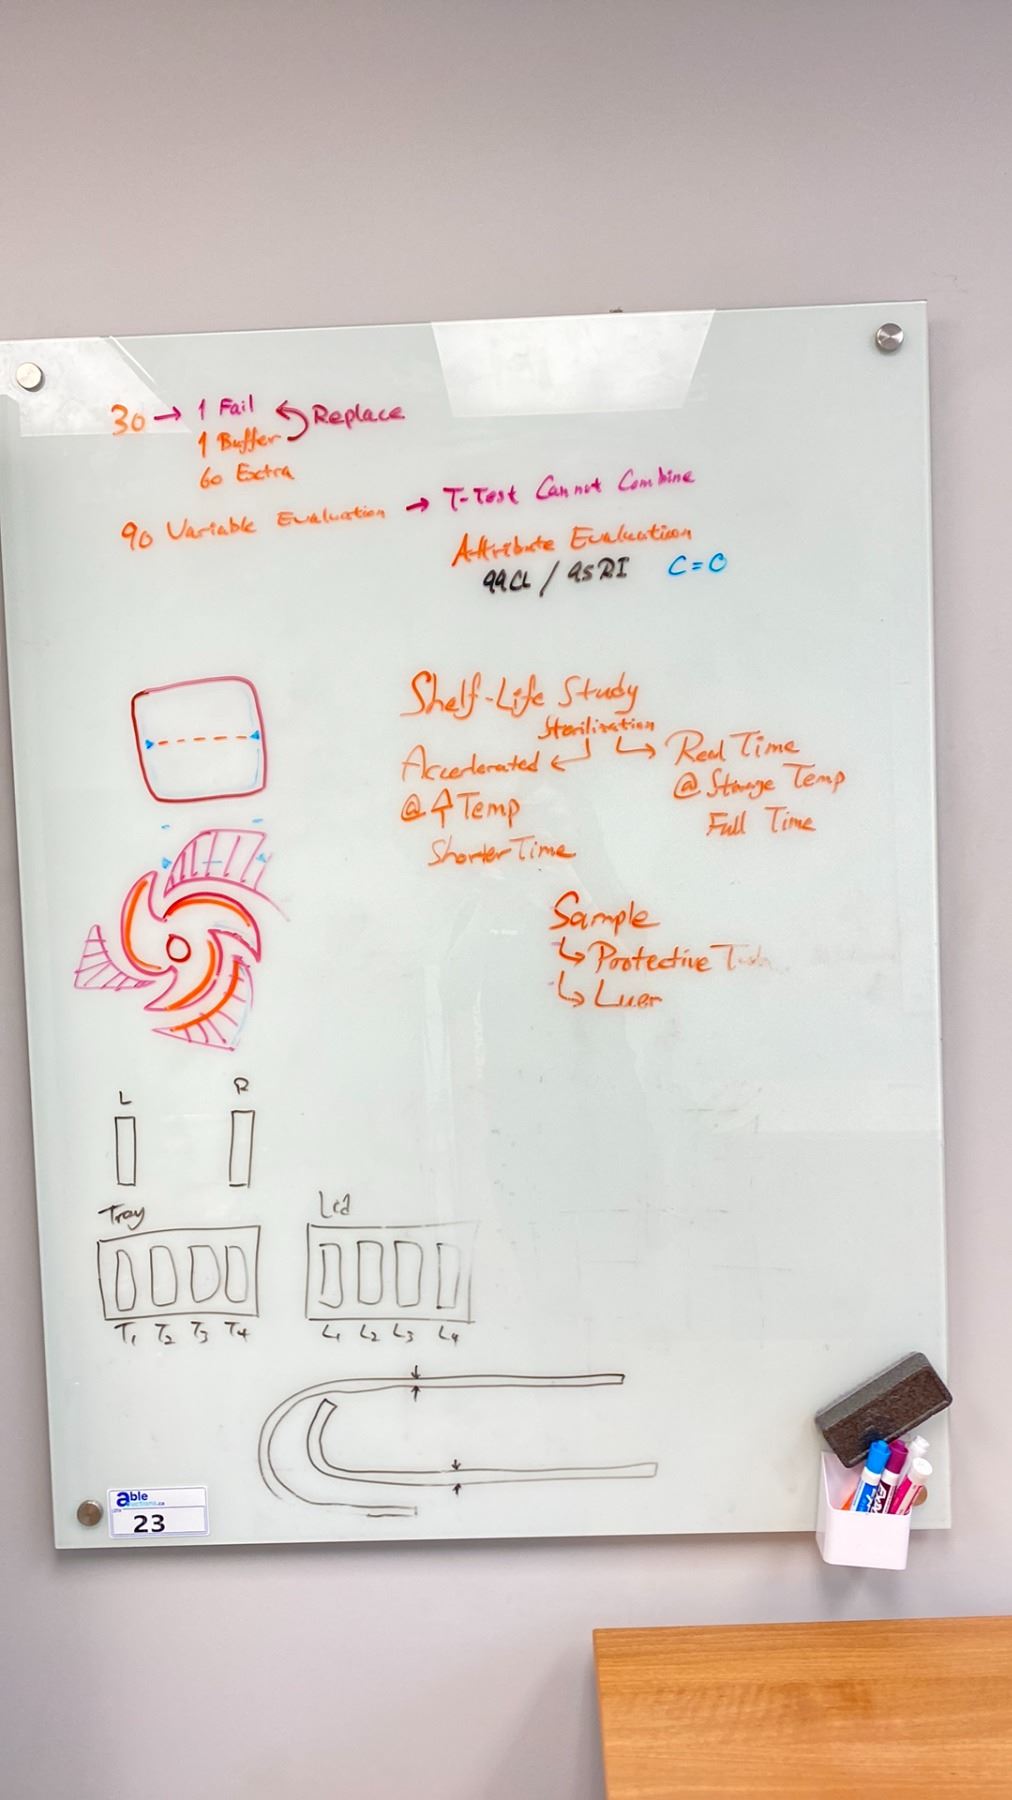 30 → 1 Fail Replace
1 Buffer
60 Extra
90 Variable Evaluation → T-Test Cannot Combine
Attribute Evaluation
99CL / 95RI C=0
Shelf-Life Study
Sterilization
Accerlerated Real Time
@ ↑ Temp @ Storage Temp
Shorter Time Full Time
Sample
↳ Protective
↳ Luer
L R
Tray Lid
T1 T2 T3 T4 L1 L2 L3 L4
able
auctions.ca
23